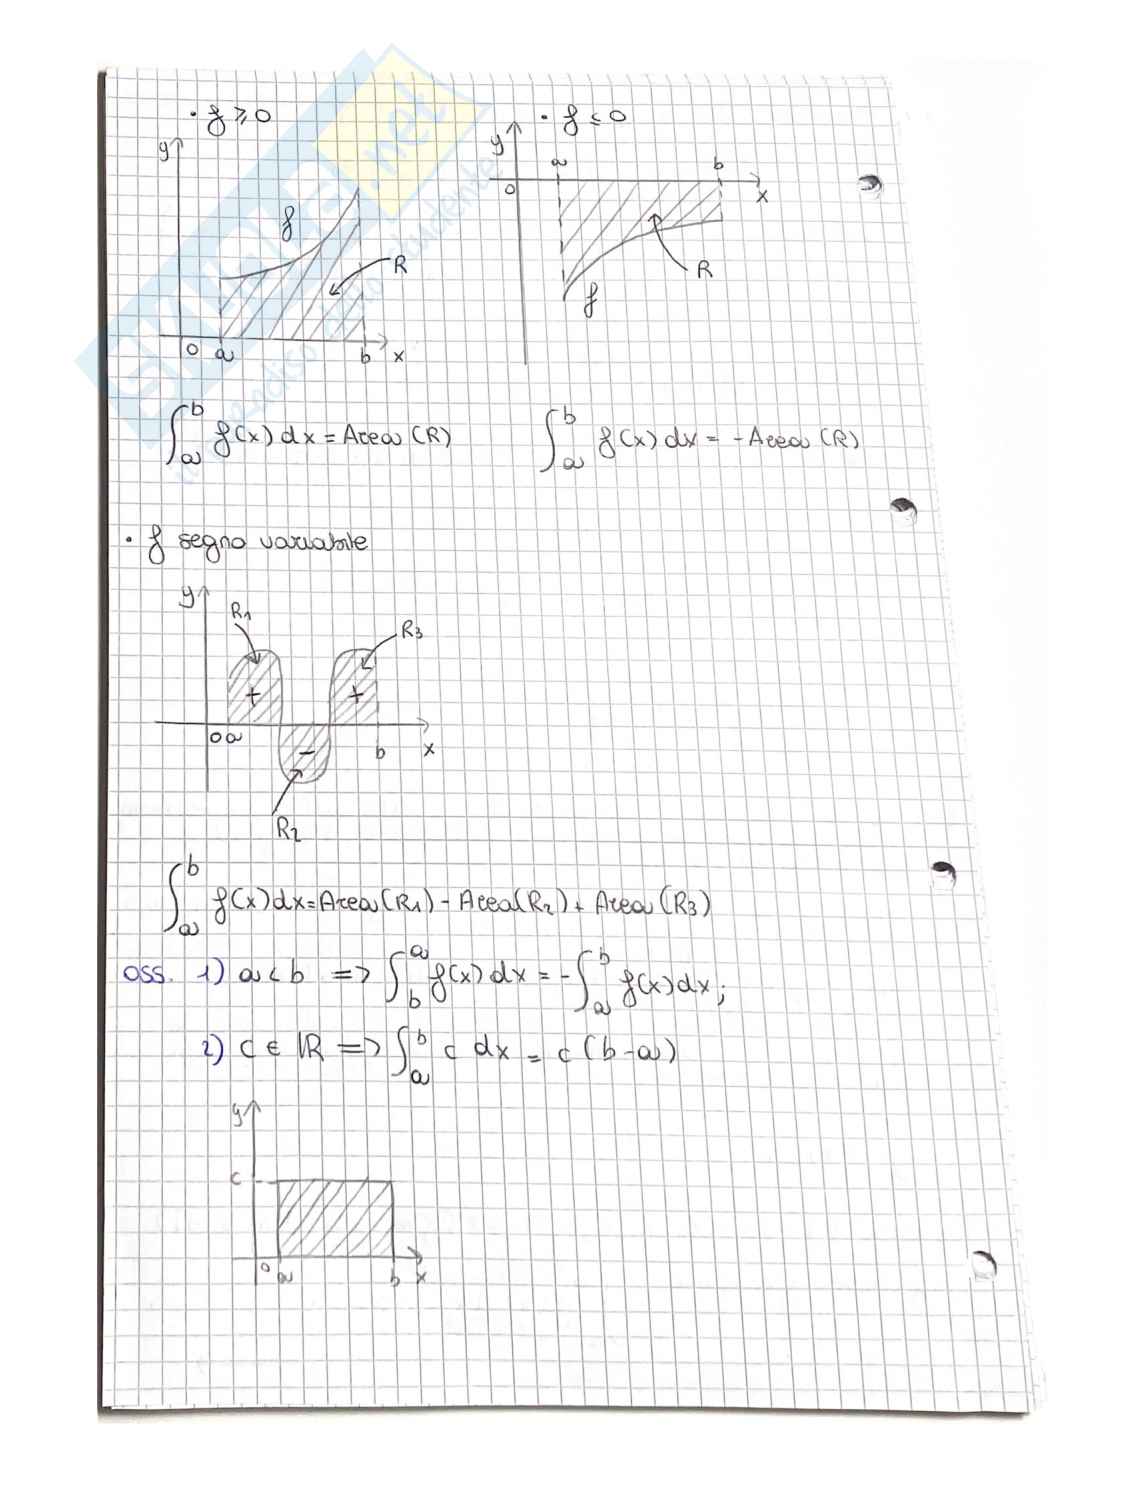 • f ≥ 0
y
f
R
0 a b x
• f ≤ 0
y
a b
0 x
R
f
∫_a^b f(x) dx = Area (R)
∫_a^b f(x) dx = - Area (R)
• f segno variabile
y
R1
R3
+ +
0 a b x
-
R2
∫_a^b f(x) dx = Area (R1) - Area (R2) + Area (R3)
oss. 1) a < b => ∫_b^a f(x) dx = - ∫_a^b f(x) dx;
2) c ∈ ℝ => ∫_a^b c dx = c (b - a)
y
c
0 a b x
SKUOLA.net